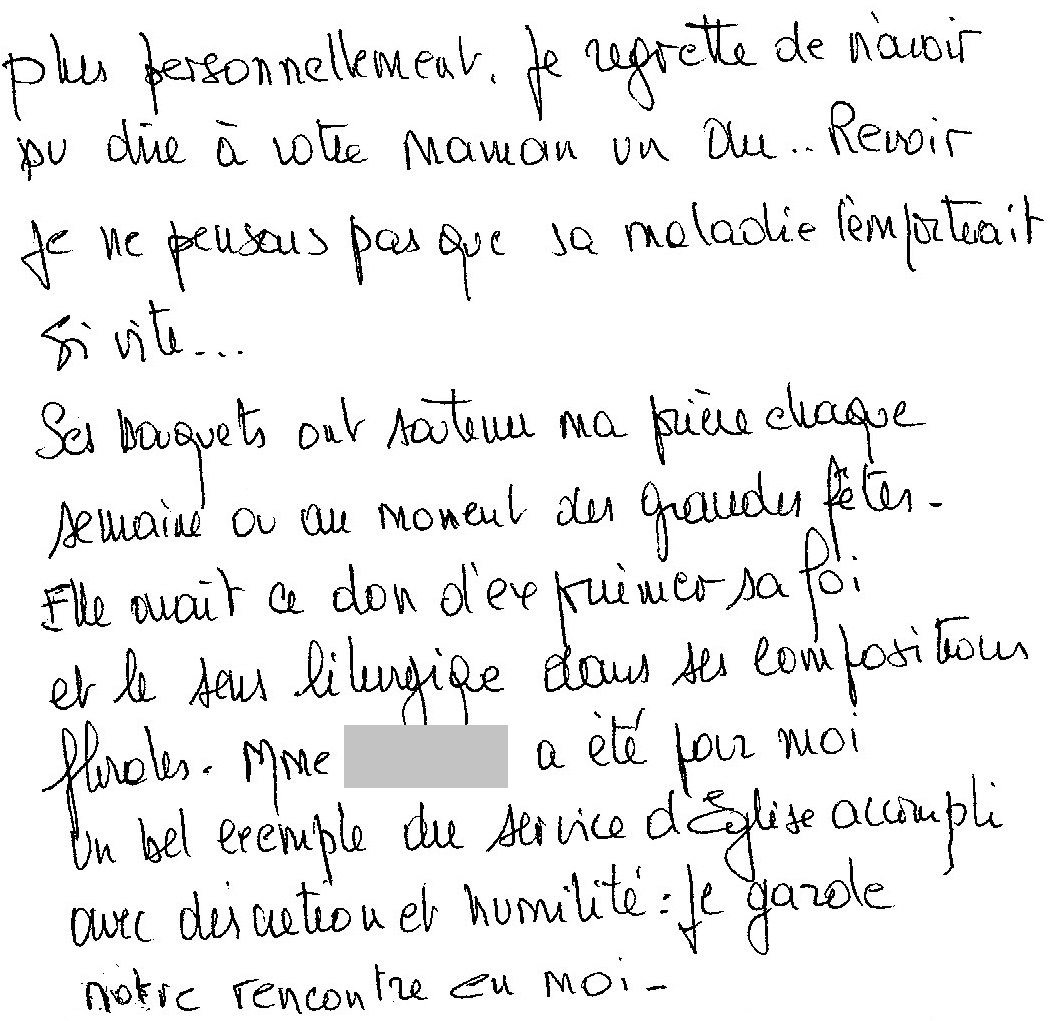 plus personnellement. Je regrette de n'avoir
pu dire à votre Maman un Au.. Revoir
Je ne pensais pas que sa maladie l'emporterait
si vite...
Ses bouquets ont soutenu ma prière chaque
semaine ou au moment des grandes fêtes -
Elle avait ce don d'exprimer sa foi
et le sens liturgique dans ses compositions
florales. Mme a été pour moi
Un bel exemple du service d'Eglise accompli
avec discrétion et humilité : Je garde
notre rencontre en moi -